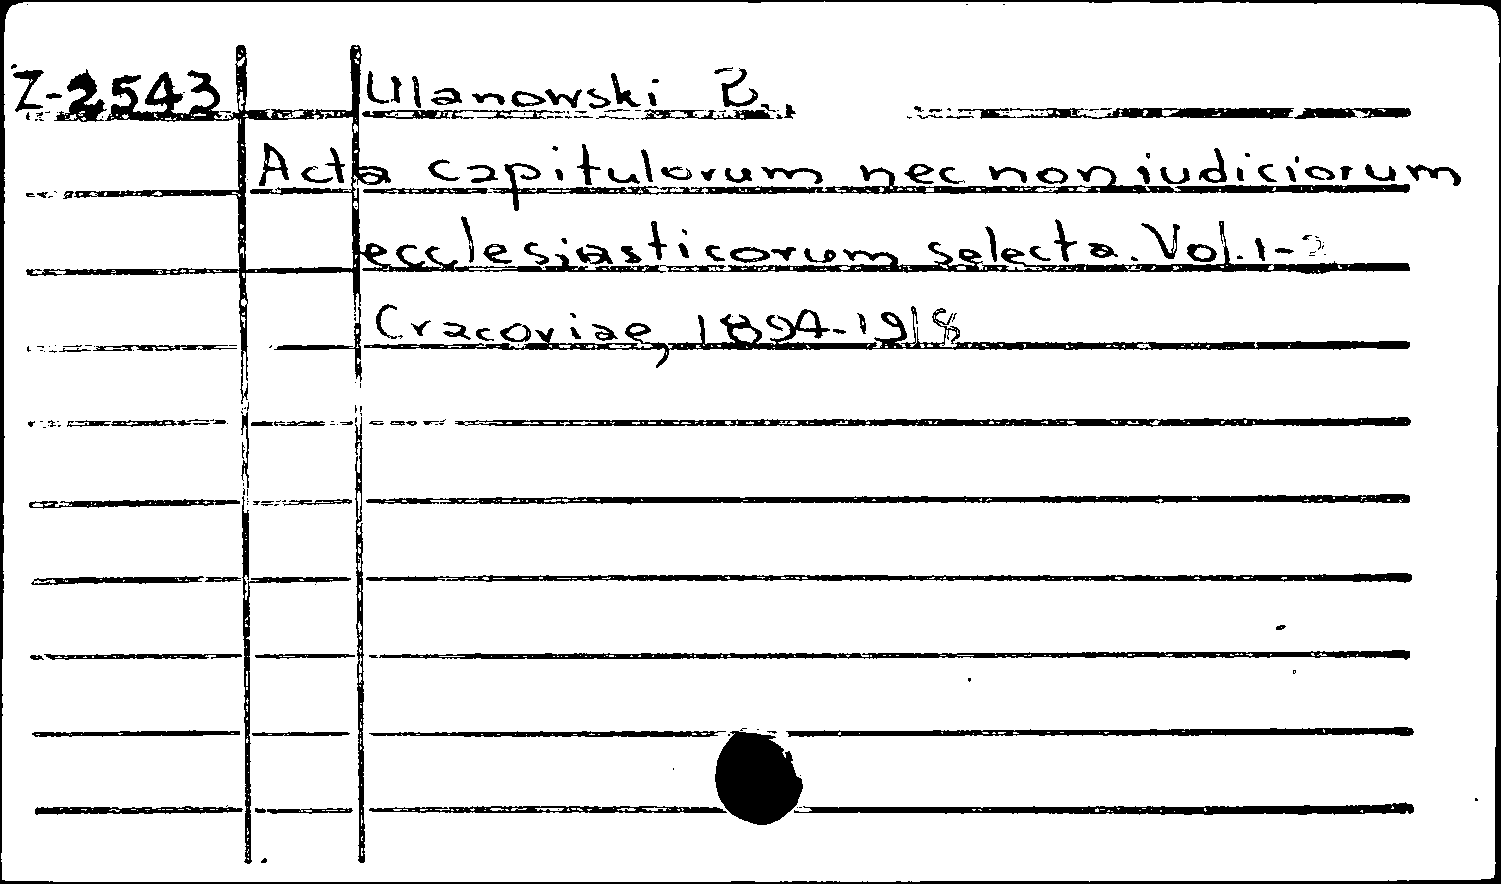 Z-2543 Ulanowski B.
Acta capitulorum nec non iudiciorum
ecclesiasticorum selecta. Vol. 1-2
Cracoviae, 1894-1918